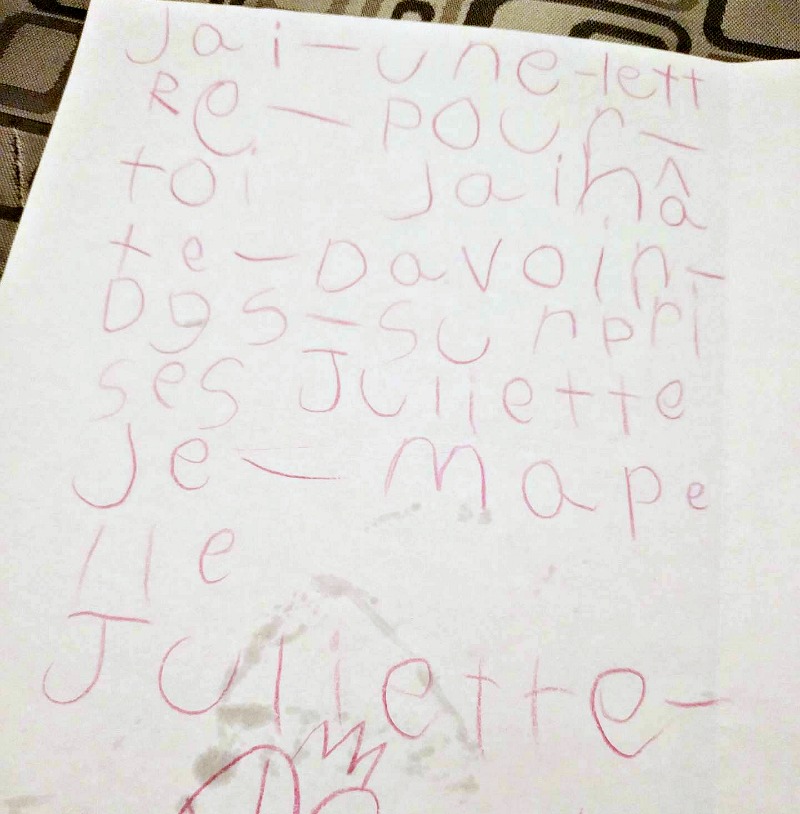 Jai-une-lett
Re-pour-
toi Jaihâ
te-Davoir-
Des-surpri
ses Juliette
Je-mape
lle
Juliette-